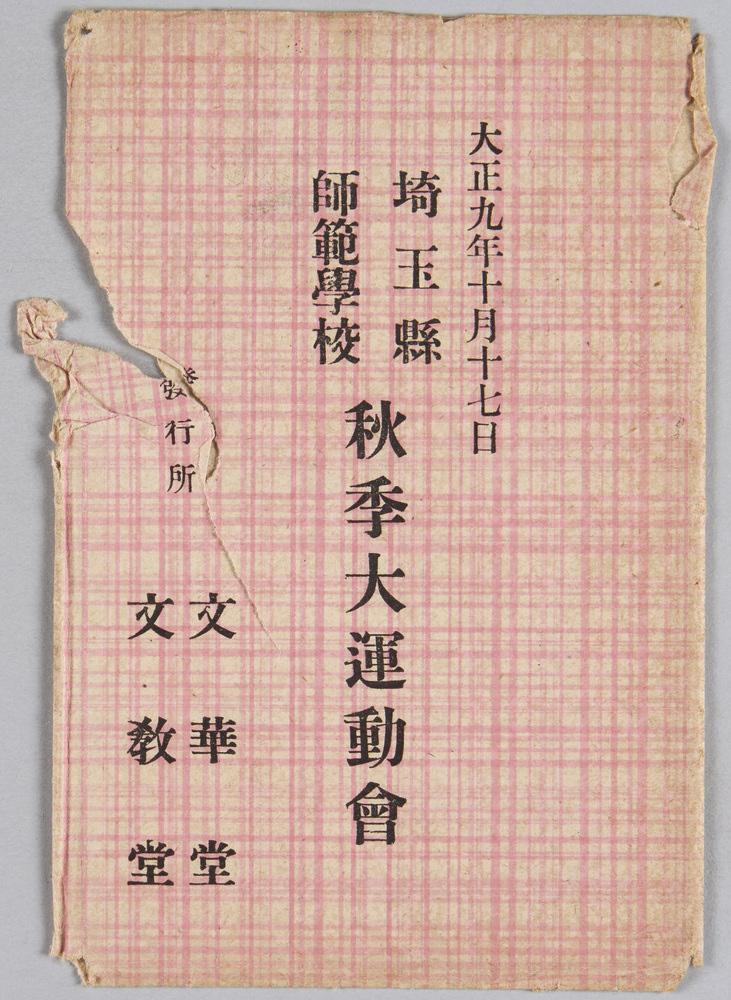 大正九年十月十七日
埼玉縣
師範學校
秋季大運動會
發行所
文華堂
文敎堂